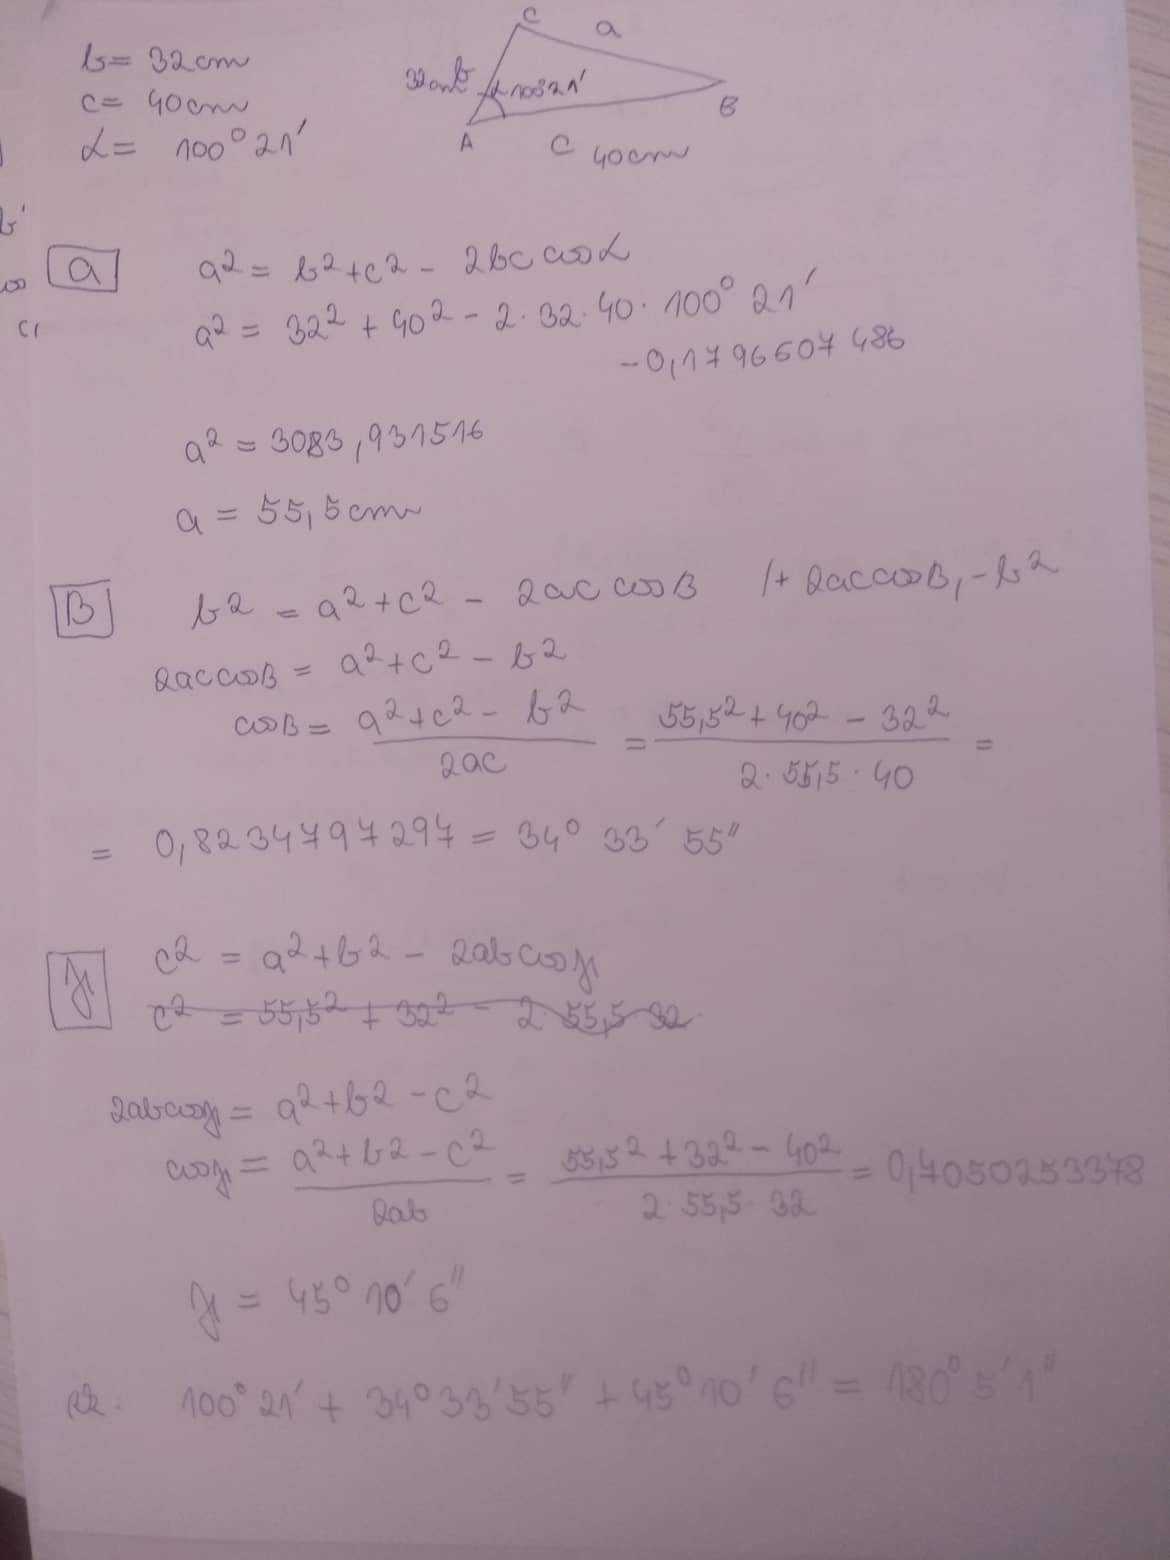 b = 32 cm
c = 40 cm
α = 100° 21'
C
a
32cm b
α 100°21'
A
B
c 40cm
a
a² = b² + c² - 2bc cosα
a² = 32² + 40² - 2·32·40·100° 21'
-0,1796607486
a² = 3083,931516
a = 55,5cm
B
b² = a² + c² - 2ac cosB /+ 2ac cosB, -b²
2ac cosB = a² + c² - b²
cosB = (a² + c² - b²)/2ac = (55,5² + 40² - 32²)/(2·55,5·40) =
= 0,8234797297 = 34° 33' 55''
γ
c² = a² + b² - 2ab cosγ
c² = 55,5² + 32² - 2 55,5 32
2ab cosγ = a² + b² - c²
cosγ = (a² + b² - c²)/2ab = (55,5² + 32² - 40²)/(2·55,5·32) = 0,7050253378
γ = 45° 10' 6''
100° 21' + 34° 33' 55'' + 45° 10' 6'' = 180° 5' 1''